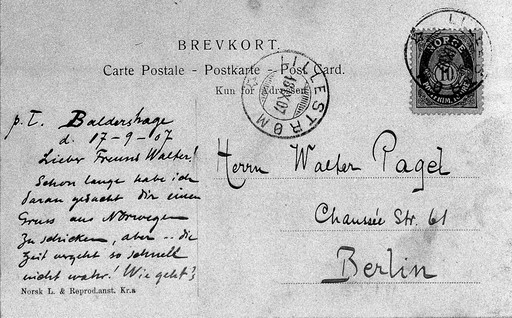 BREVKORT.
Carte Postale - Postkarte - Post Card.
Kun for Adressen.
NORGE
10
LILLESTRØM
18 IX 07
p. T. Baldershage
d. 17-9-07
Lieber Freund Walter!
Schon lange habe ich
daran gedacht dir einen
Gruss aus Norwegen
zu schicken, aber -- die
Zeit vergeht so schnell
nicht wahr! Wie geht's
Norsk L. & Reprod.anst. Kr.a
Herrn Walter Pagel
Chaussée Str. 61
Berlin